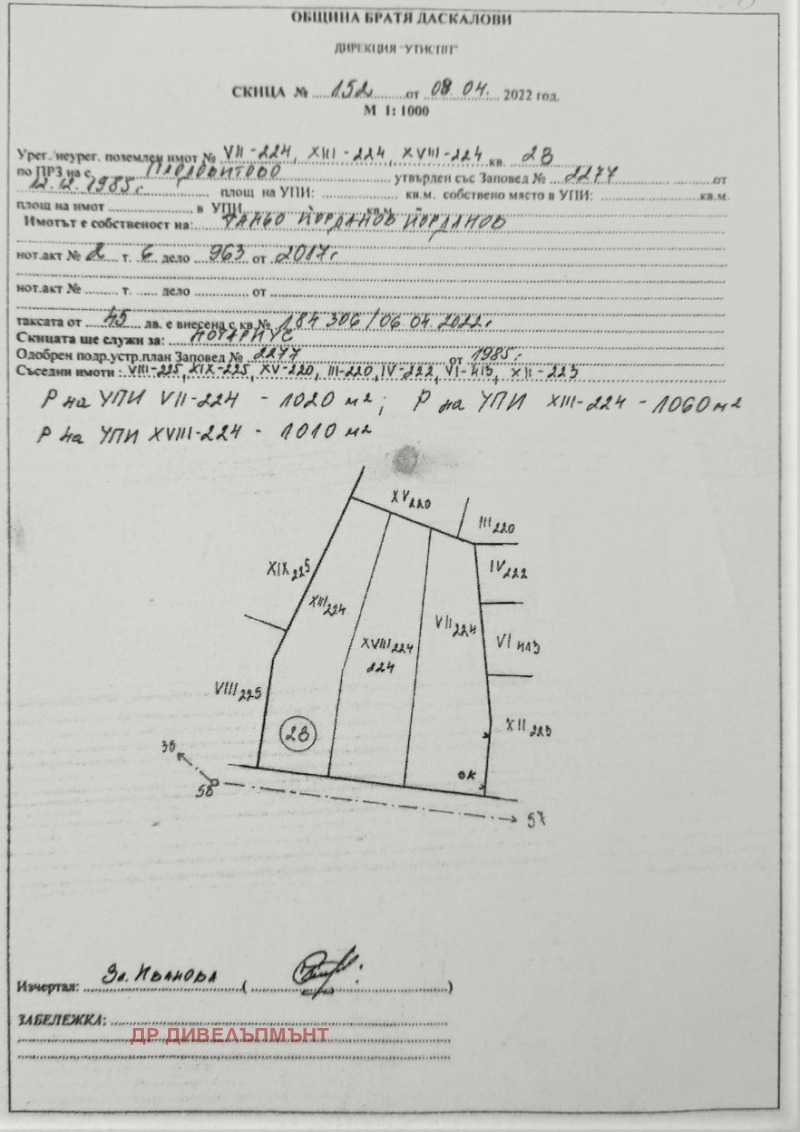 ОБЩИНА БРАТЯ ДАСКАЛОВИ
ДИРЕКЦИЯ "УТИСТПГ"
СКИЦА № 152 от 08 04. 2022 год.
М 1: 1000
Урег./неурег. поземлен имот № VII-224, XIII-224, XVIII-224 кв. 28
по ПРЗ на с. утвърден със Заповед № 2277 от
12.12.1985г площ на УПИ: кв.м. собствено място в УПИ: кв.м.
площ на имот в УПИ кв.м.
Имотът е собственост на: ГАНЬО ЙОРДАНОВ ЙОРДАНОВ
нот.акт № 2 т. 6 дело 963 от 2017г
нот.акт № т. дело от
таксата от 45 лв. е внесена с кв.№ 184 306/06 04 2022г
Скицата ще служи за: НОТАРИУС
Одобрен подр.устр.план Заповед № 2277 от 1985г.
Съседни имоти: VIII-225, XIX-225, XV-220, III-220, IV-222, VI-ИЛЗ, XII-223
Р на УПИ VII-224 - 1020 м²; Р на УПИ XIII-224 - 1060 м²
Р на УПИ XVIII-224 - 1010 м²
XV 220
III 220
XIX 225
IV 222
XIII 224
VII 224
XVIII 224
224
VI ИЛЗ
VIII 225
XII 223
28
38
ОК
58
57
Изчертал: Зл. Иванова ( )
ЗАБЕЛЕЖКА:
ДР ДИВЕЛЪПМЪНТ